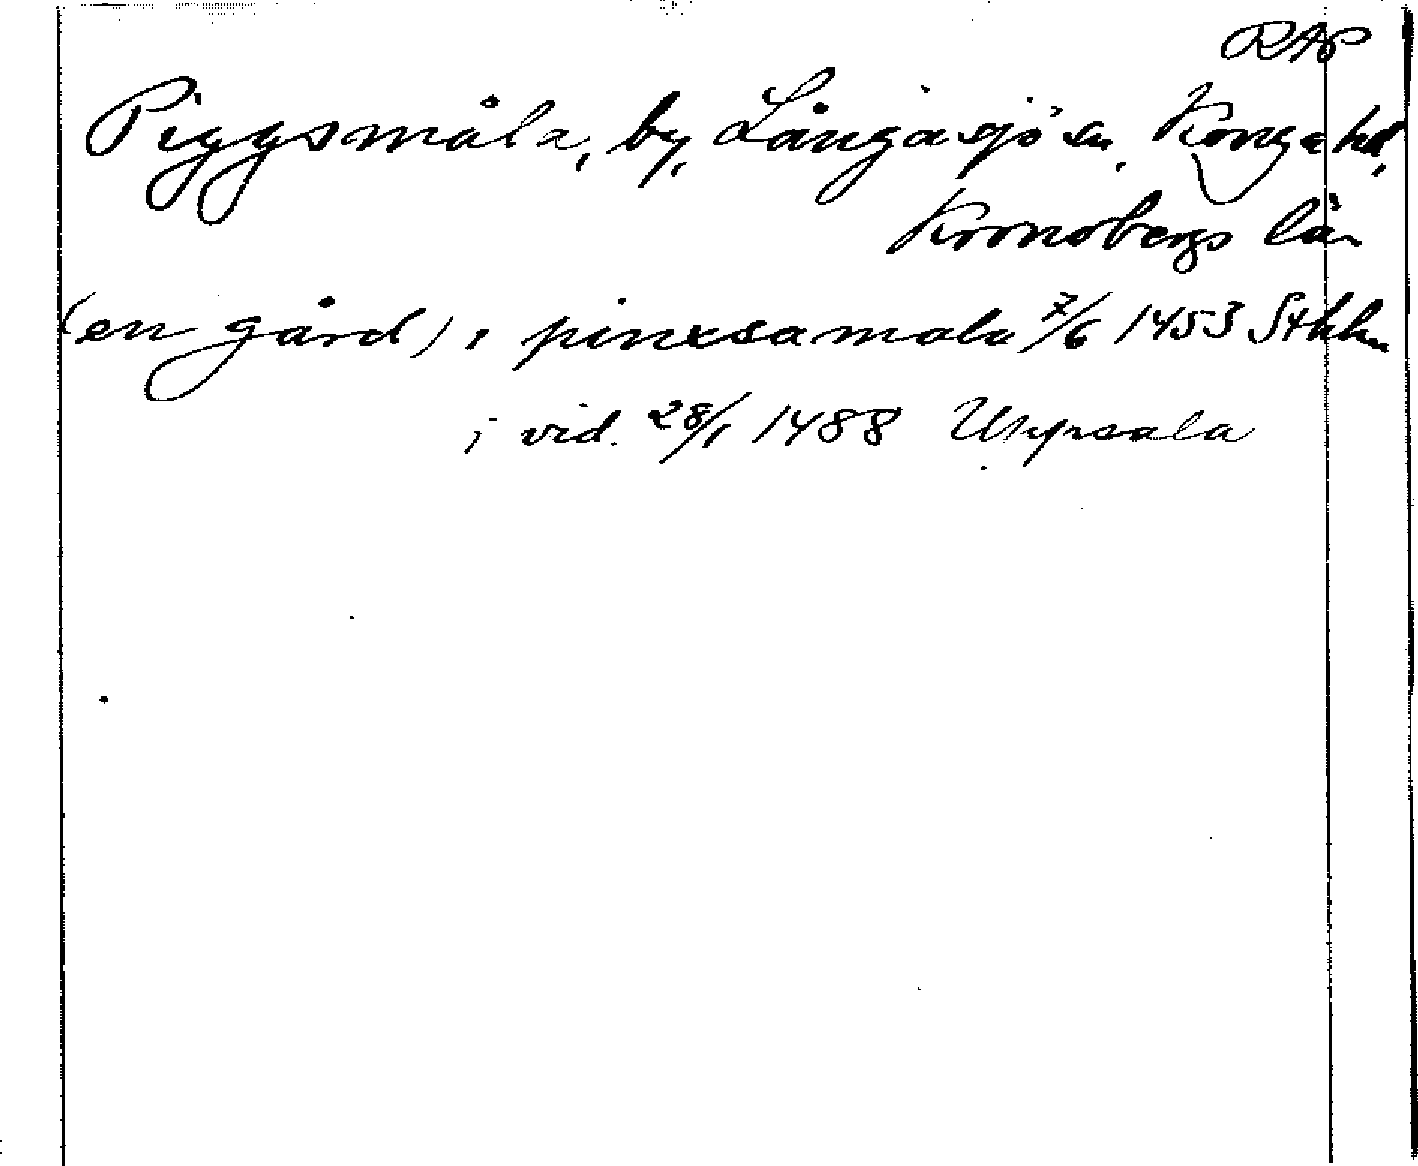 RAP
Piggsmåla, by, Långasjö sn, Konga hd,
Kronobergs län
(en gård) i pinxsamala 7/6 1453 Sthlm
i vid. 28/1 1488 Uppsala